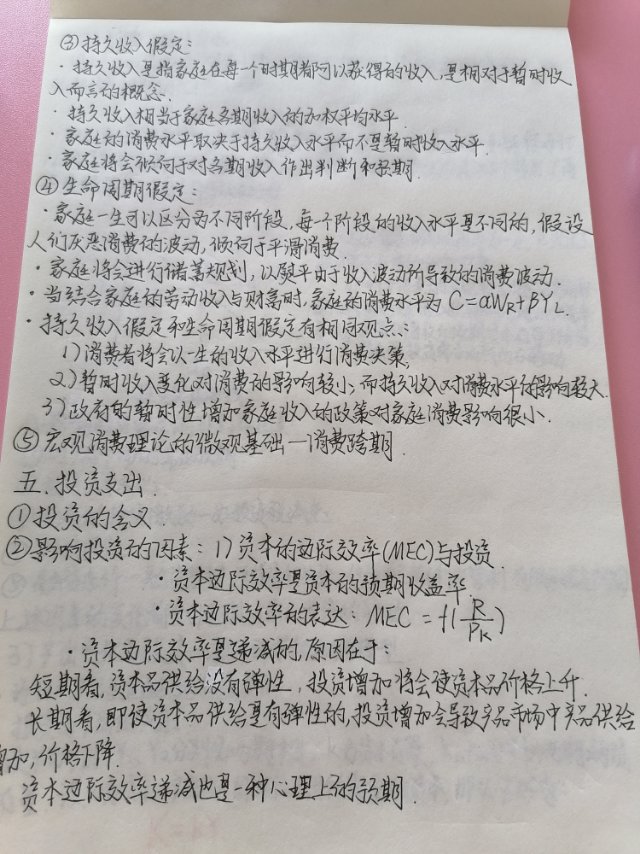 ③持久收入假定：
·持久收入是指家庭在每一个时期都可以获得的收入，是相对于暂时收
入而言的概念.
·持久收入相当于家庭各期收入的加权平均水平.
·家庭的消费水平取决于持久收入水平而不是暂时收入水平.
·家庭将会倾向于对各期收入作出判断和预期.
④生命周期假定：
·家庭一生可以区分为不同阶段，每一个阶段的收入水平是不同的，假设
人们厌恶消费的波动，倾向于平滑消费.
·家庭将会进行储蓄规划，以熨平由于收入波动所导致的消费波动.
·当结合家庭的劳动收入与财富时，家庭的消费水平为 C=αWR+βYL.
·持久收入假定和生命周期假定有相同观点：
1)消费者将会以一生的收入水平进行消费决策;
2)暂时收入变化对消费的影响较小，而持久收入对消费水平的影响较大.
3)政府的暂时性增加家庭收入的政策对家庭消费影响很小.
⑤宏观消费理论的微观基础—消费跨期.
五.投资支出.
①投资的含义
②影响投资的因素：1)资本的边际效率(MEC)与投资.
·资本边际效率是资本的预期收益率.
·资本边际效率的表达：MEC=f(R/PK)
·资本边际效率是递减的，原因在于：
短期看，资本品供给没有弹性，投资增加将会使资本品价格上升.
长期看，即使资本品供给是有弹性的，投资增加会导致产品市场中产品供给
增加，价格下降.
资本边际效率递减也是一种心理上的预期.